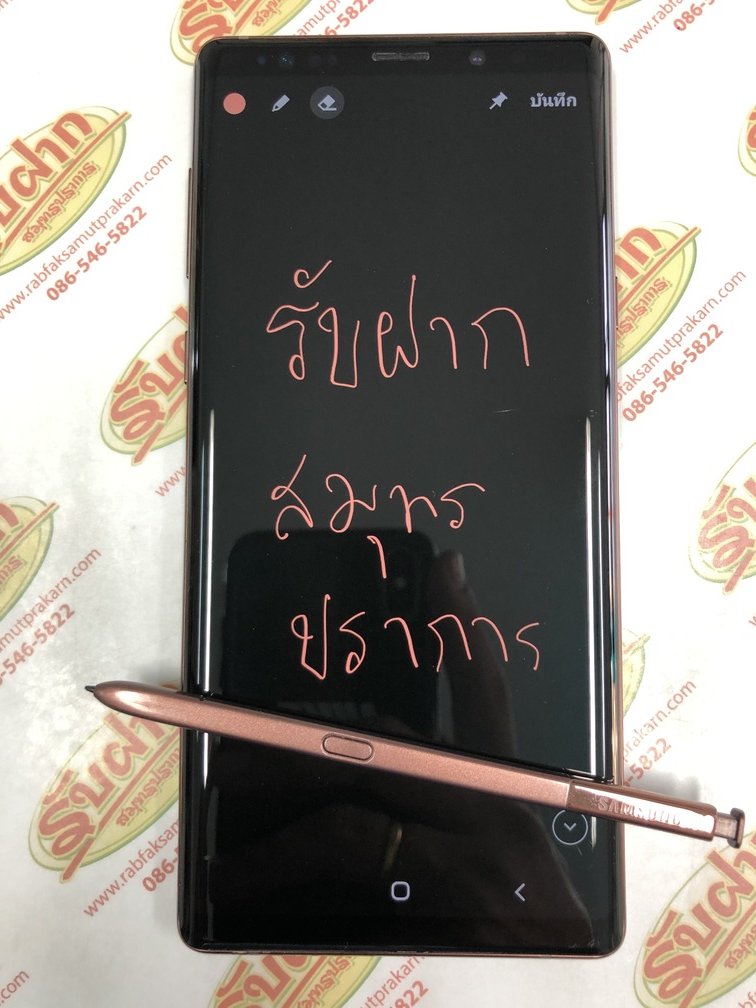 บันทึก
รับฝาก
สมุทร
ปราการ
SAMSUNG
รับฝาก
สมุทรปราการ
www.rabfaksamutprakarn.com
086-546-5822